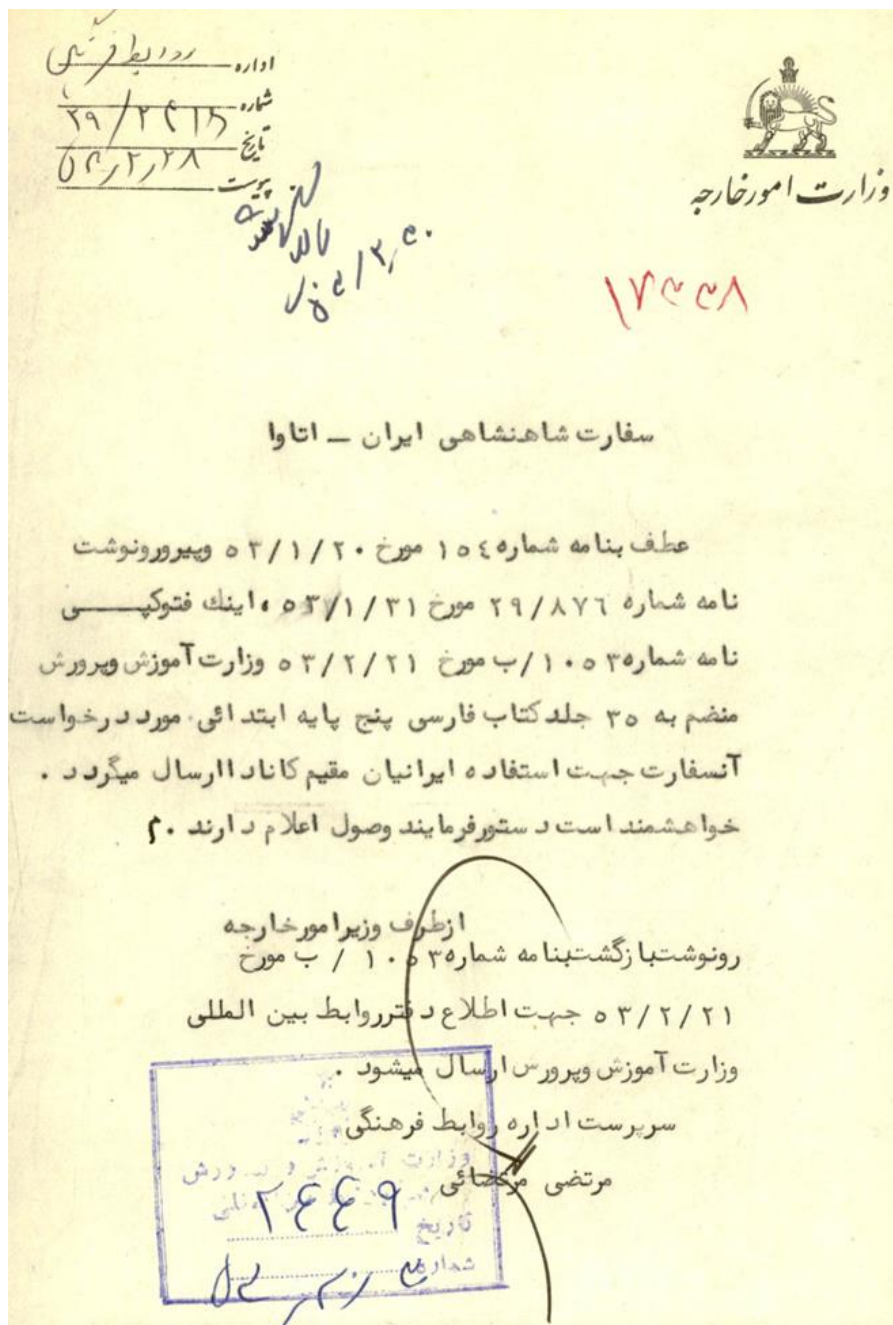 وزارت امور خارجه
اداره روابط فرهنگی
شماره
تاریخ ۵۳/۲/۲۸
پیوست
۱۷۳۳۸
سفارت شاهنشاهی ایران ــ اتاوا
عطف بنامه شماره ۱۵۴ مورخ ۵۳/۱/۲۰ وپیرورونوشت
نامه شماره ۲۹/۸۷۶ مورخ ۵۳/۱/۳۱ ، اینك فتوکپـــی
نامه شماره ۱۰۵۳/ب مورخ ۵۳/۲/۲۱ وزارت آموزش وپرورش
منضم به ۳۵ جلد کتاب فارسی پنج پایه ابتدائی مورد درخواست
آنسفارت جهت استفاده ایرانیان مقیم کانادا ارسال میگردد .
خواهشمند است دستور فرمایند وصول اعلام دارند . م
از طرف وزیر امور خارجه
رونوشت بازگشت بنامه شماره ۱۰۵۳ / ب مورخ
۵۳/۲/۲۱ جهت اطلاع دفتر روابط بین المللی
وزارت آموزش وپرورش ارسال میشود .
سرپرست اداره روابط فرهنگی
مرتضی مرتضائی
وزارت آموزش و پرورش
تاریخ ۲۴۴۹
شماره